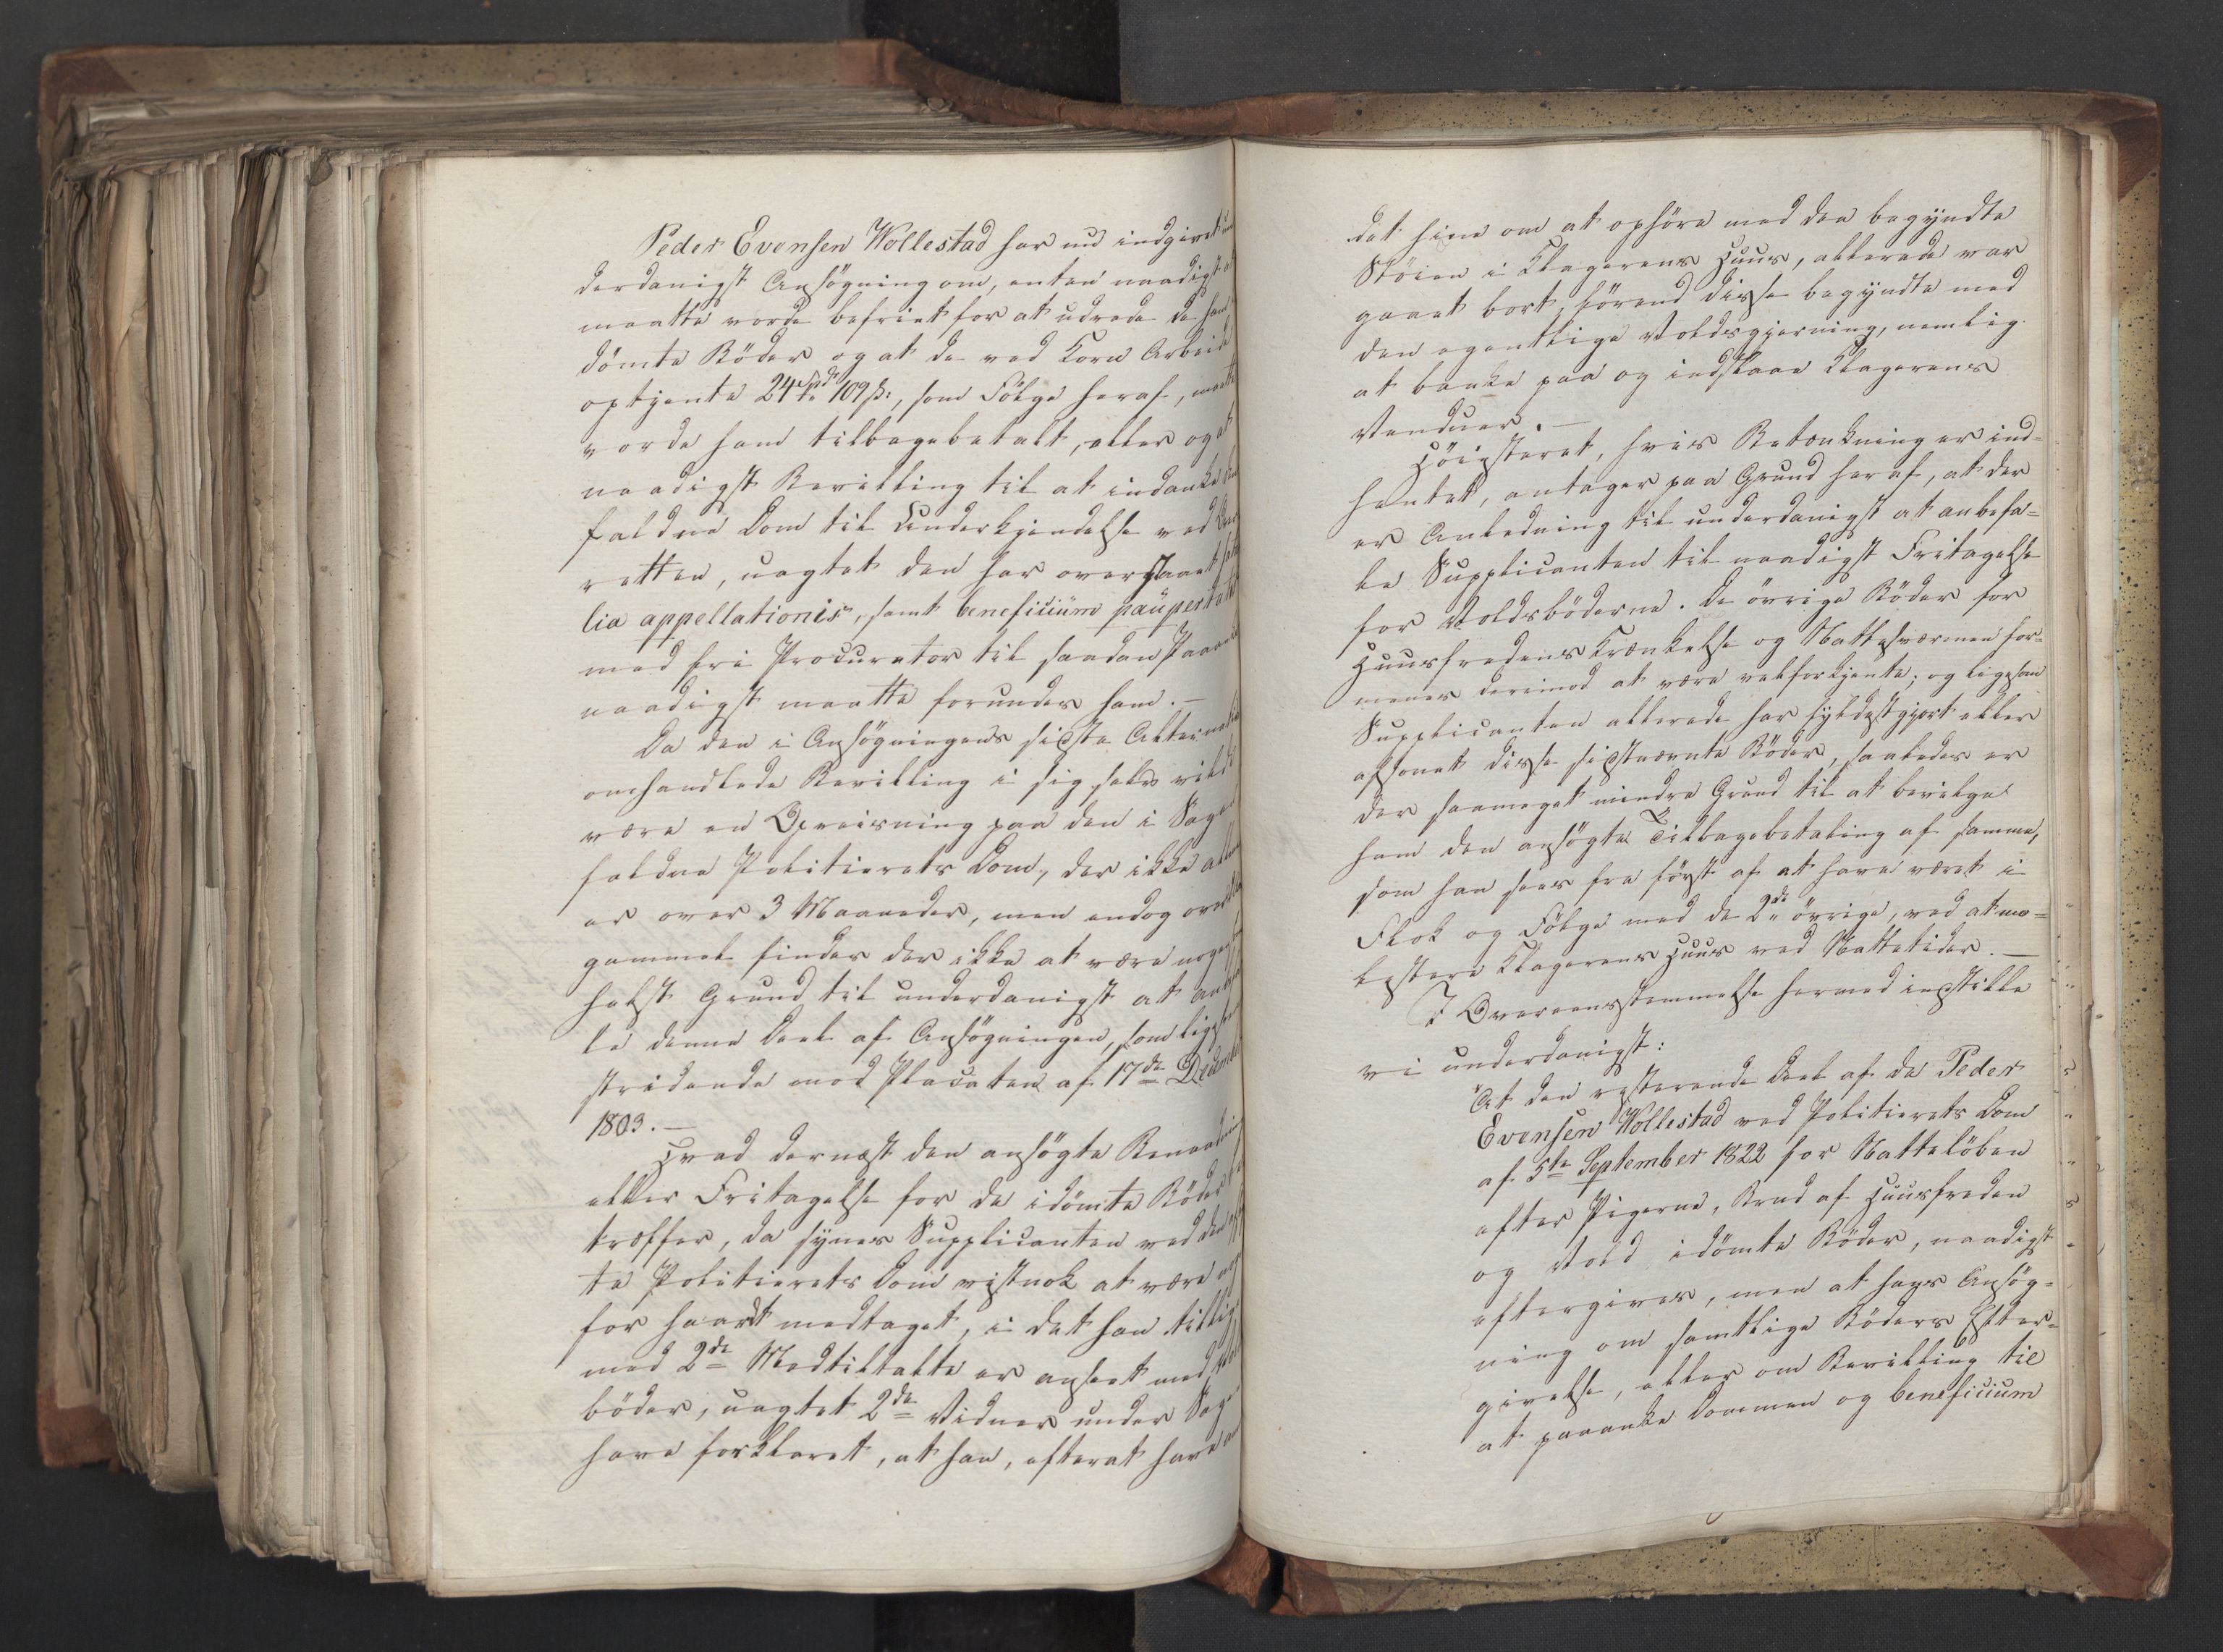 Peder Evensen Wollestad har nu indgivet un
derdanigst Ansøgning om, enten naadigst at
maatte vorde befriet for at udrede de ham
dømte Bøder og at de ved Korn Arbeide
optjente 24 Spd 109 s:, som Følge heraf, maatte
vorde ham tilbagebetalt, eller og at
naadigst Bevilling til at indanke den
faldne Dom til Underkjendelse ved Over
retten, uagtet den har oversiddet fata
lia appellationis, samt beneficium paupertatis
med fri Procurator til saadan Paaanke
naadigst maatte forundes ham. –
Da den i Ansøgningens sidste Alternativ
omhandlede Bevilling i sig selv vilde
være en Opreisning paa den i Sagen
faldne Politierets Dom, der ikke allene
er over 3 Maaneder, men endog over
gammel findes der ikke at være nogen
helst Grund til underdanigst at anbefa
le denne Deel af Ansøgningen, som ligefrem
stridende mod Placaten af 17de Decemb
1803. –
Hvad dernæst den ansøgte Benaadning
eller Fritagelse for de idømte Bøder be
træffer, da synes Supplicanten ved den
te Politierets Dom vistnok at være no
for haardt medtaget, i det han tillige
med 2de Medtiltalte er anseet med Vold
bøder, uagtet 2de Vidner under Sagen
have forklaret, at han, efterat have
det hine om at ophøre med den begyndte
Støien i Klagerens Huus, allerede var
gaaet bort, førend disse begyndte med
den egentlige Voldsgjerning, nemlig
at banke paa og indslaae Klagerens
Vinduer. –
Høiesteret, hvis Betænkning er ind=
hentet, antager paa Grund heraf, at der
er Anledning til underdanigst at anbefa=
le Supplicanten til naadigst Fritagelse
for Voldsbøderne. De øvrige Bøder for
Huusfredens Krænkelse og Nattesværmen for=
menes derimod at være velforskyldte; og ligesom
Supplicanten allerede har fyldestgjort eller
afsonet disse sidstnævnte Bøder, saaledes er
der saameget mindre Grund til at bevilge
ham den ansøgte Tilbagebetaling af samme,
som han sees fra først af at have været i
Flok og Følge med de 2de øvrige, ved at mo=
lestere Klagerens Huus ved Nattetider. –
I Overeensstemmelse hermed indstille
vi underdanigst:
At den resterende Deel af de Peder
Evensen Wollestad ved Politierets Dom
af 5te September 1822 for Natteløben
efter Pigerne, Brud af Huusfreden
og Vold idømte Bøder, naadigst
eftergives, men at hans Ansøg=
ning om samtlige Bøders Efter=
givelse, eller om Bevilling til
at paaanke Dommen og beneficium